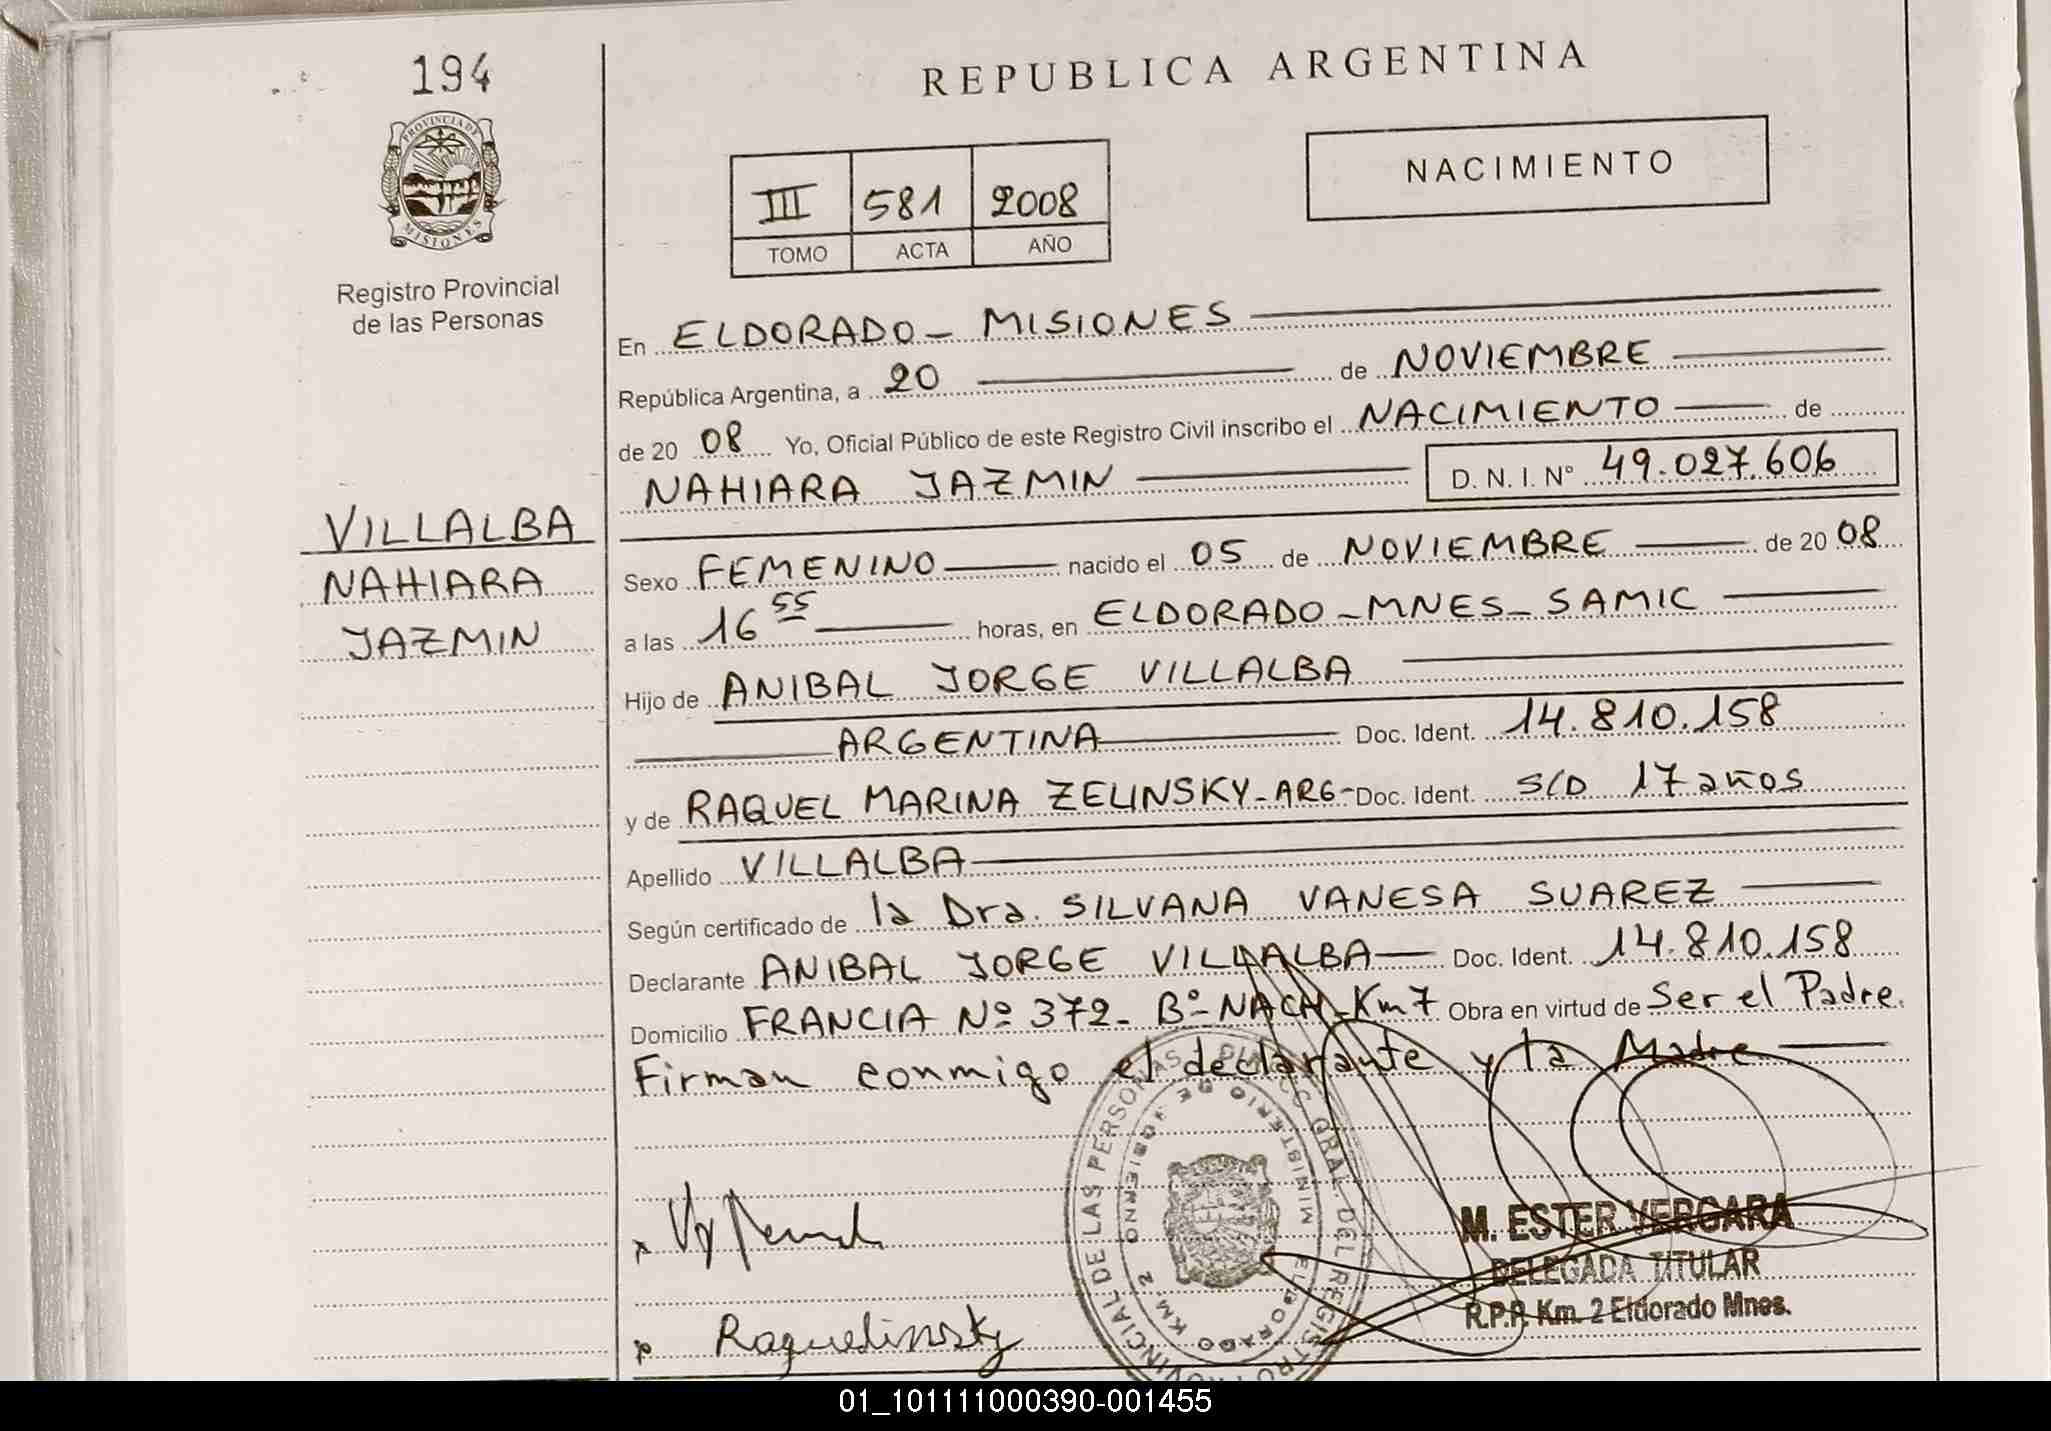 194
REPUBLICA ARGENTINA
PROVINCIA DE
MISIONES
Registro Provincial
de las Personas
III 581 2008
TOMO ACTA AÑO
NACIMIENTO
En ELDORADO - MISIONES
República Argentina, a 20 de NOVIEMBRE
de 20 08 Yo, Oficial Público de este Registro Civil inscribo el NACIMIENTO de
NAHIARA JAZMIN D. N. I. N° 49.027.606
VILLALBA
NAHIARA
JAZMIN
Sexo FEMENINO nacido el 05 de NOVIEMBRE de 20 08
a las 16 55 horas, en ELDORADO - MNES - SAMIC
Hijo de ANIBAL JORGE VILLALBA
ARGENTINA Doc. Ident. 14.810.158
y de RAQUEL MARINA ZELINSKY - ARG - Doc. Ident. S/D 17 años
Apellido VILLALBA
Según certificado de la Dra. SILVANA VANESA SUAREZ
Declarante ANIBAL JORGE VILLALBA Doc. Ident. 14.810.158
Domicilio FRANCIA Nº 372 - Bº NACH - Km 7 Obra en virtud de Ser el Padre.
Firman conmigo el declarante y la Madre
M. ESTER VERGARA
DELEGADA TITULAR
R.P.P. Km. 2 Eldorado Mnes.
DE LAS PERSONAS
GRAL. DEL REGISTRO PROVINCIAL
MINISTERIO DE GOBIERNO
ELDORADO KM. 2
01_101111000390-001455